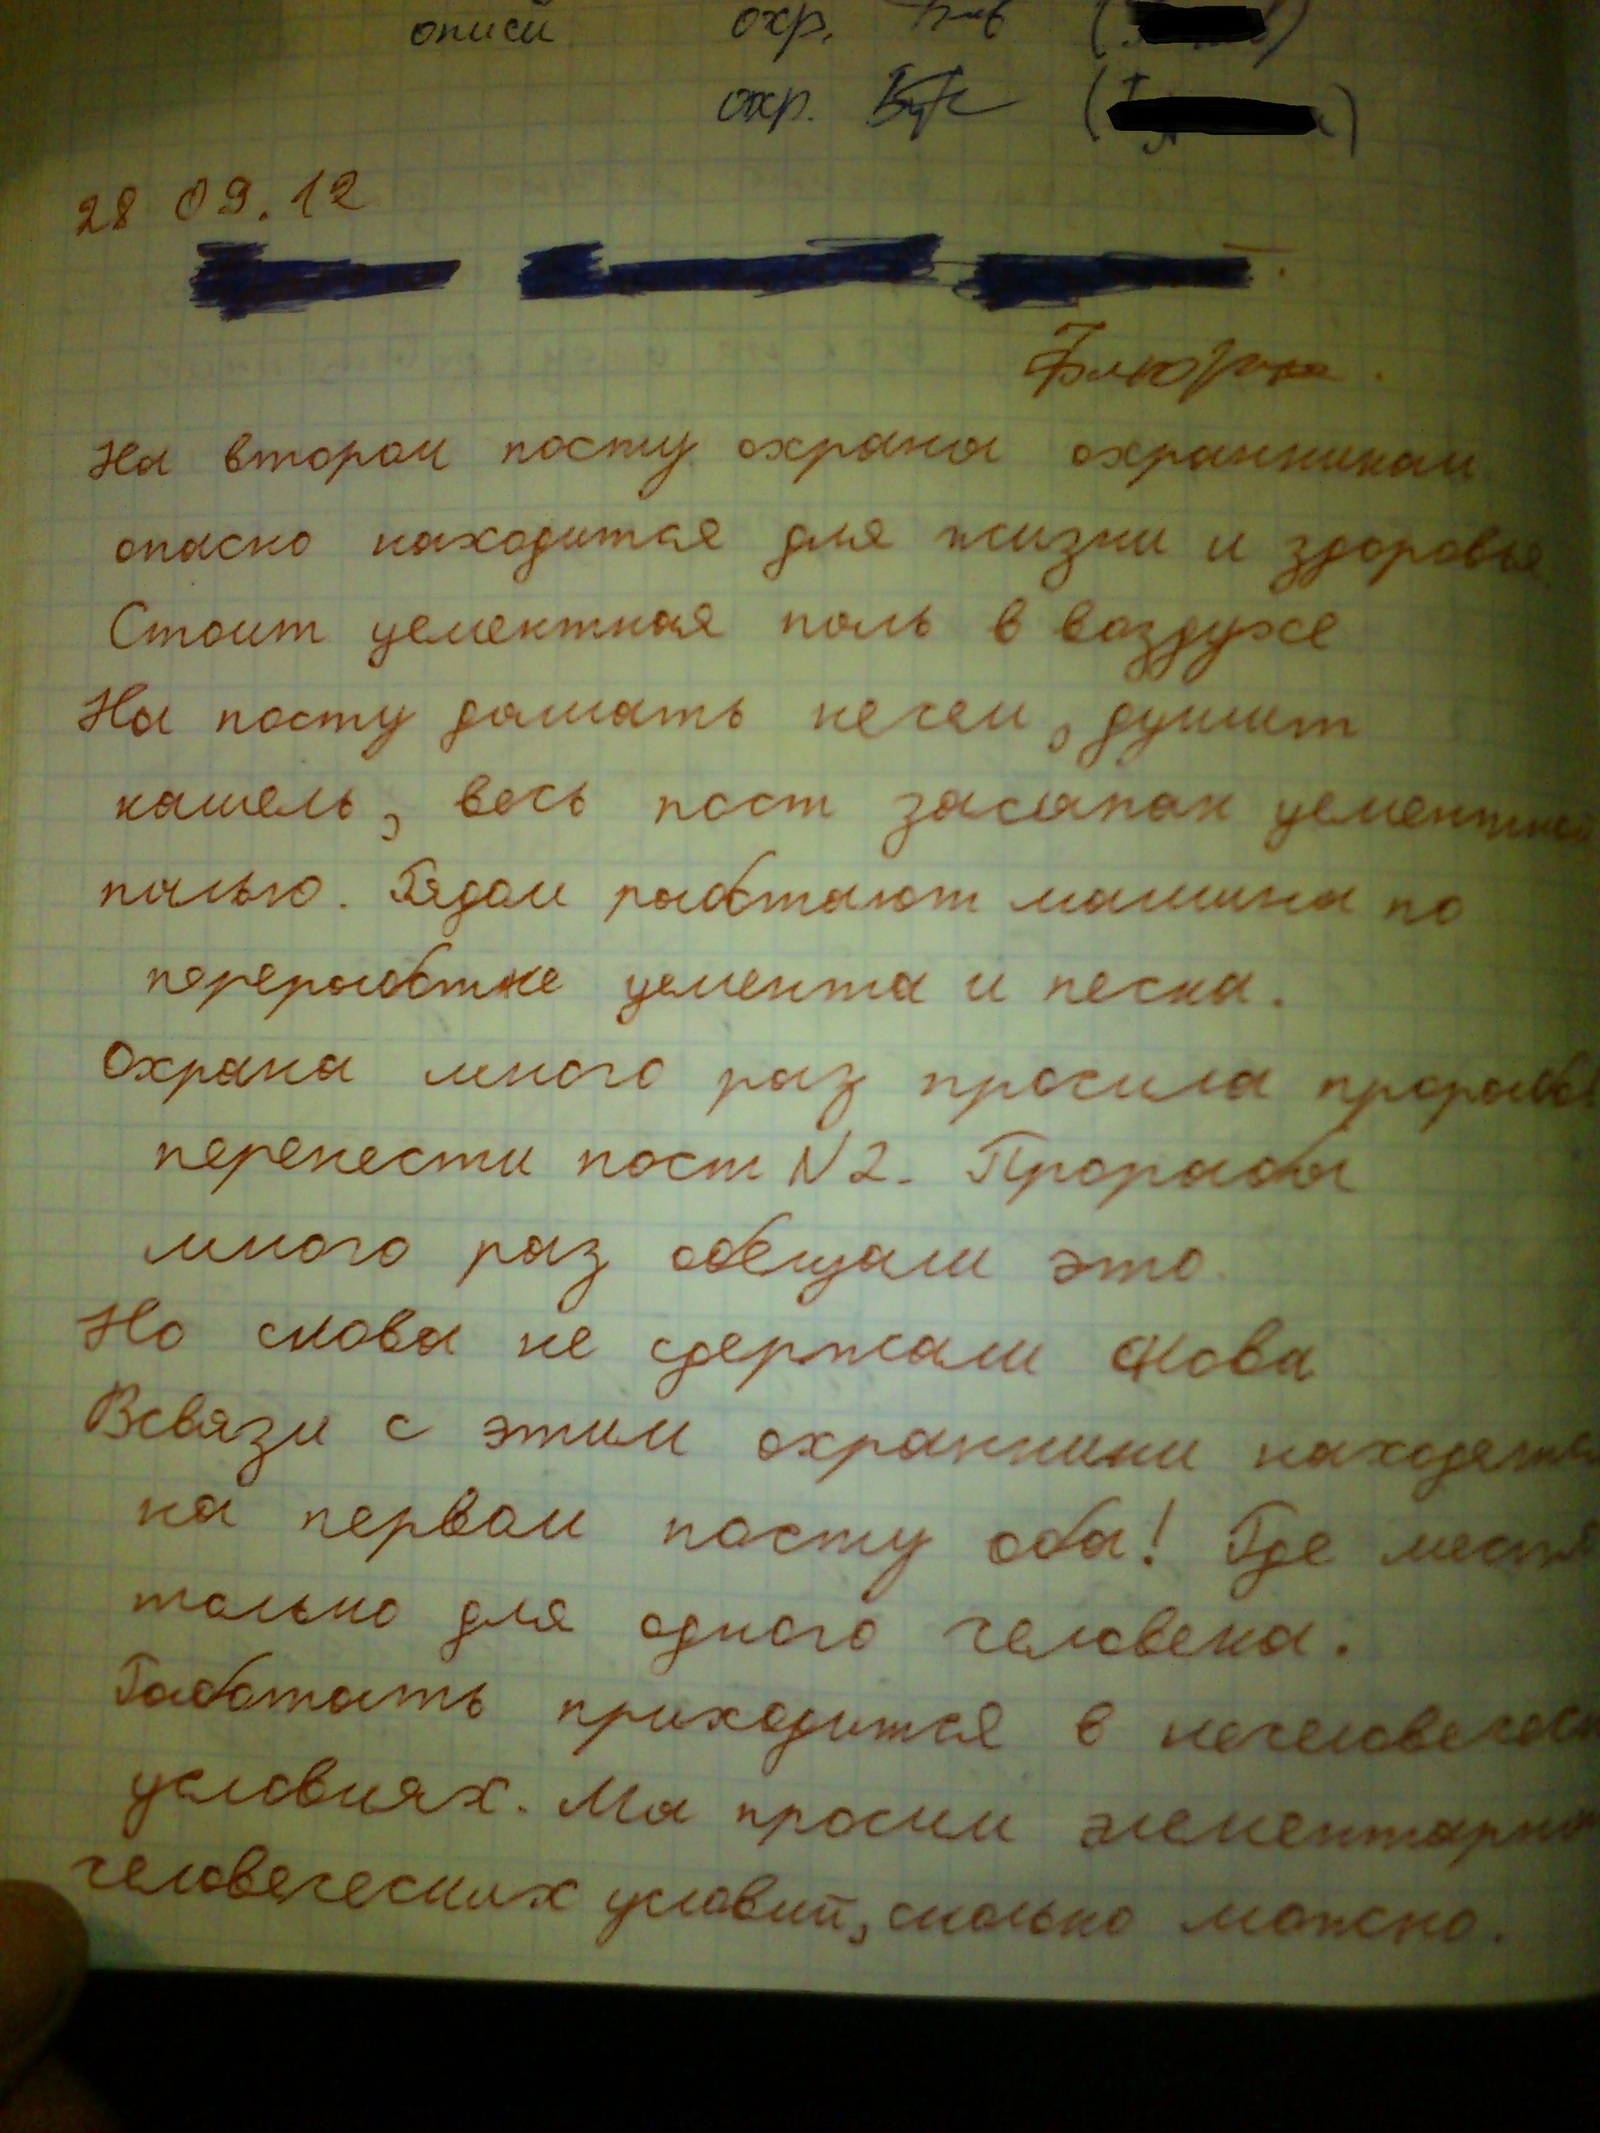 описи охр.
охр.
28 09.12
На втором посту охраны охранникам
опасно находится для жизни и здоровья
Стоит цементная пыль в воздухе
На посту дышать нечем, душит
кашель, весь пост засыпан цементной
пылью. Рядом работают машины по
переработке цемента и песка.
Охрана много раз просила прораба
перенести пост N2. Прорабы
много раз обещали это
Но слова не сдержали снова
Всвязи с этим охранники находятся
на первом посту оба! Где место
только для одного человека.
Работать приходится в нечеловеческ
условиях. Мы просим элементарны
человеческих условий, сколько можно.